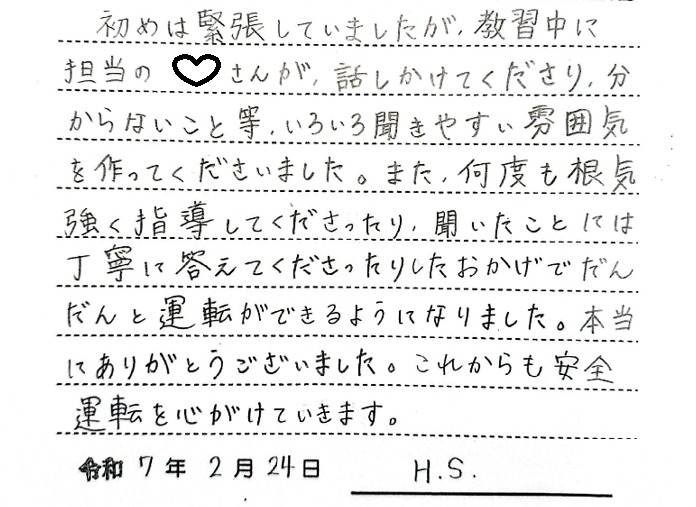 初めは緊張していましたが、教習中に
担当の ♡ さんが、話しかけてくださり、分
からないこと等、いろいろ聞きやすい雰囲気
を作ってくださいました。また、何度も根気
強く指導してくださったり、聞いたことには
丁寧に答えてくださったりしたおかげでだん
だんと運転ができるようになりました。本当
にありがとうございました。これからも安全
運転を心がけていきます。
令和 7 年 2 月 24 日 H.S.